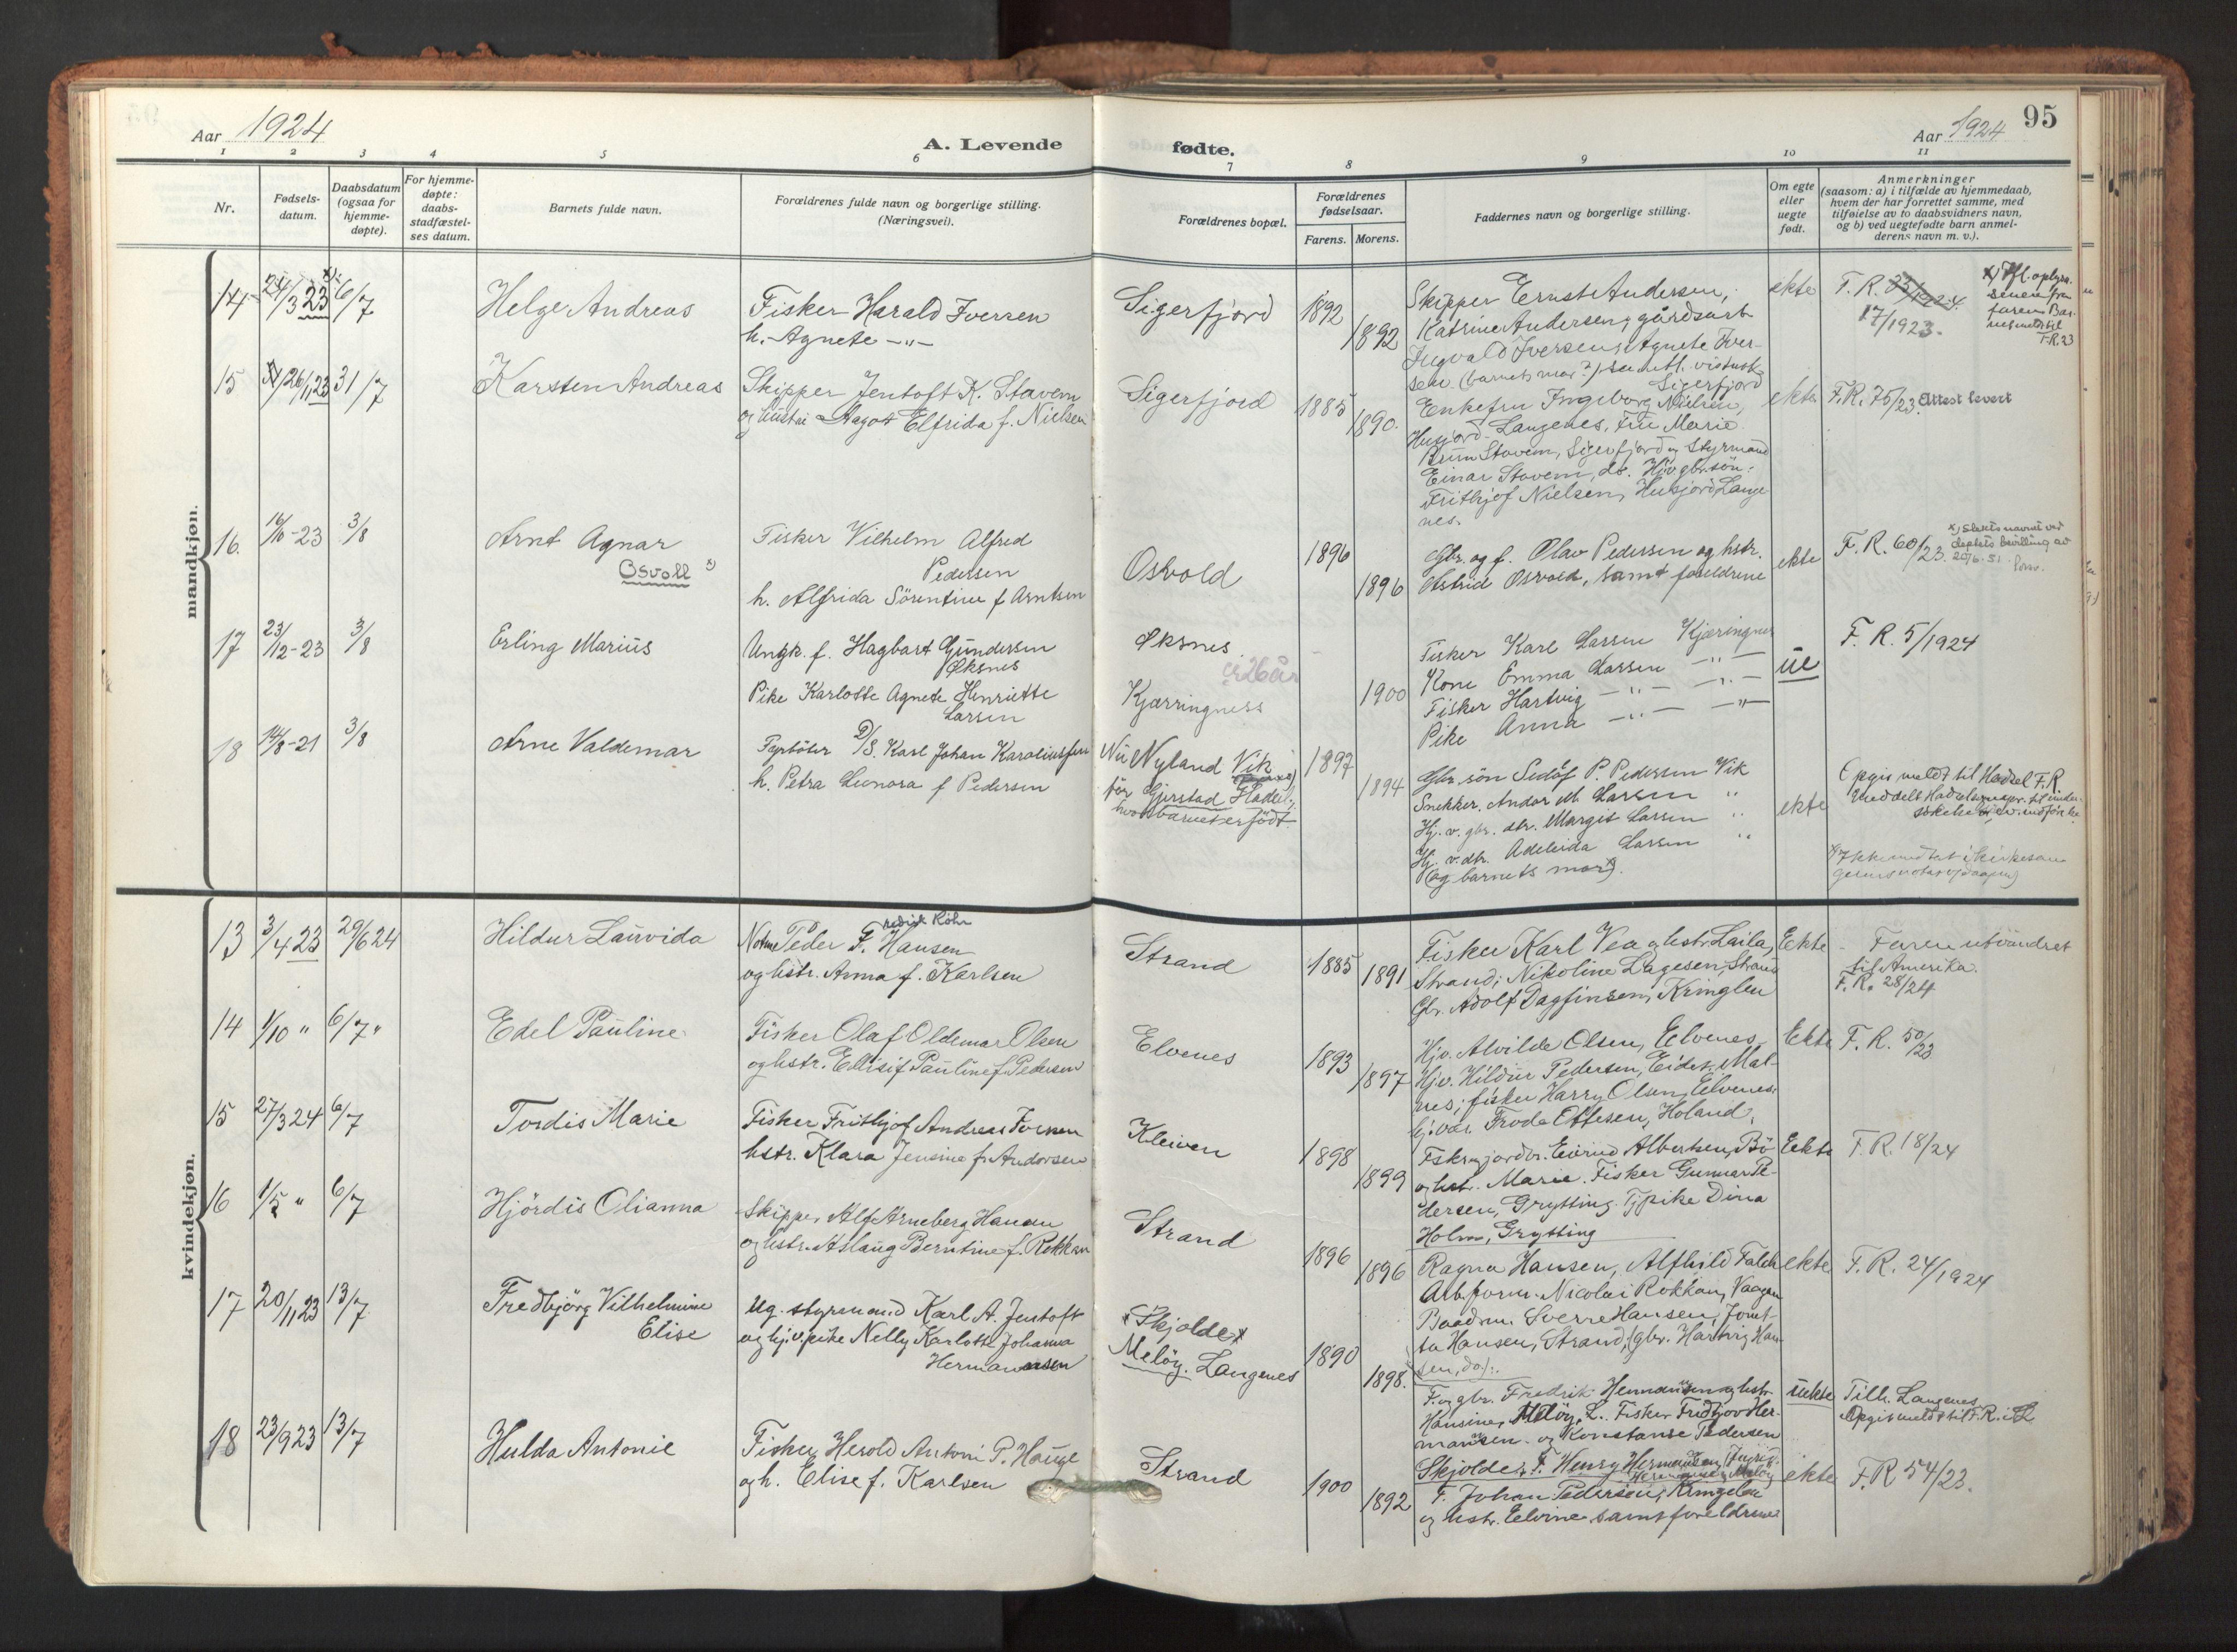 95
Aar 1924
A. Levende
fødte.
Aar 1924
1 2 3 4 5 6 7 8 9 10 11
Nr.
Fødsels-
datum.
Daabsdatum
(ogsaa for
hjemme-
døpte).
For hjemme-
døpte:
daabs-
stadfæstel-
ses datum.
Barnets fulde navn.
Forældrenes fulde navn og borgerlige stilling.
(Næringsvei).
Forældrenes bopæl.
Forældrenes
fødselsaar.
Farens. Morens.
Faddernes navn og borgerlige stilling.
Om egte
eller
uegte
født.
Anmerkninger
(saasom: a) i tilfælde av hjemmedaab,
hvem der har forrettet samme, med
tilføielse av to daabsvidners navn,
og b) ved uegtefødte barn anmel-
derens navn m. v.).
mandkjøn.
14 24/3 23 x) 6/7
Helge Andreas
Fisker Harald Iversen
h. Agnete -"-
Sigerfjord
1892
1892
Skipper Ernst Andersen,
Katrine Andersen, gårdsarb
Ingvald Iversen, Agnete Iver-
sen (barnets mor?)
Sigerfjord
ekte
F. R. 33/1924.
17/1923.
15 26/1 23 31/7
Karsten Andreas
Skipper Jentoft K. Stavem
og hustru Aagot Elfrida f. Nielsen
Sigerfjord
1885
1890.
Enkefru Ingeborg Nielsen,
Husjord Langenes, Fru Marie
Bruun Stavem, Sigerfjord og Styrmand
Einar Stavem, do. Hjv gbr.søn.
Frithjof Nielsen, Husjord Lange
nes.
ekte
F.R. 75/23. Attest levert
16. 16/10-23 3/8
Arnt Agnar
Osvoll x)
Fisker Vilhelm Alfred
Pedersen
h. Alfrida Sörentine f Arntsen
Osvold
1896
1896
Gbr. og f. Olav Pedersen og hstr.
Astrid Osvold, samt foreldrene
ekte
F. R. 60/23
x) Slektsnavnet ved
deptets bevilling av
20/6-51
17 23/12-23 3/8
Erling Marius
Ungk. f. Hagbart Gundersen
Øksnes
Pike Karlotte Agnete Henriette
Larsen
Øksnes
er 26 år
Kjærringness
1900
Fisker Karl Larsen Kjæringnes
Kone Emma Larsen -"-
Fisker Hartvig -"- -"-
Pike Anna -"- -"-
ue
F. R. 5/1924
18 14/8-21 3/8
Arne Valdemar
Fyrböter D/S. Karl Johan Karoliussen
h. Petra Leonora f Pedersen
Nu Nyland Vik
før Gjerstad Hadsel,
hvor barnet er født
1897
1894
Gbr. søn Sedöf P. Pedersen Vik
Snekker. Andor M. Larsen "
Hj. v. gbr. dtr. Margit Larsen "
Hj. v. dtr. Adeleida Larsen "
(og barnets mor x).
ekte
Opgis meldt til Hadsel F.R.
kvindekjøn.
13 3/4 23 29/6 24
Hildur Lauvida
Notm Peder F. Hansen
redrik Röhr
og hstr. Anna f. Karlsen
Strand
1885
1891
Fisker Karl Vea og hstr. Laila,
Strand; Nikoline Lagesen, Strand
Gbr. Adolf Dagfinsen, Kringlen
Eekte
Faren utvandret
til Amerika.
F. R. 28/24
14 1/10 " 6/7 "
Edel Pauline
Fisker Olaf Oldemar Olsen
og hstr. Ellisif Pauline f. Pedersen
Elvenes
1893
1897
Hjv. Alvilde Olsen, Elvenes
Hjv. Hildur Pedersen, Eidet, Mal-
nes; fisker Harry Olsen, Elvenes
hj.v.dr. Frode Ottesen, Holand,
Ekte
F. R. 50/23
15 27/3 24 6/7
Tordis Marie
Fisker Frithjof Andreas Iversen
hstr. Klara Jensine f. Andersen
Kleiven
1898
1899
Fskr og jordbr. Eivind Albertsen, Bö
og hstr. Marie. Fisker Gunnar Pe-
dersen, Grytting. Tj pike Dina
Holm, Grytting
Eekte
F. R. 18/24
16 1/5 " 6/7
Hjördis Olianna
Skipper Alf Arneberg Hansen
og hstr. Aslaug Berntine f. Rokkan
Strand
1896
1896
Ragna Hansen, Alfhild Falch
Arb.form. Nicolai Rokkan, Vaagan
Baadm. Sverre Hansen, Jont-
ta Hansen, Strand, (gbr. Hartvig Han
sen, do).
ekte
F. R. 24/1924
17 20/11 23 13/7
Fredbjörg Vilhelmine
Elise
Ug. styrmand Karl A. Jentoft
og hj.v.pike Nelly Karlotte Johanna
Hermansen
x Skjolde x
Meløy. Langenes
1890
1898.
F. og gbr. Fredrik Hermansen og hstr.
Hansine, Meløy, L. Fisker Fridtjov Her-
mansen og Konstanse Pedersen
Skjolde, F. Henry Hermansen,
Meløy
uekte
Tilh. Langenes
Opgis meldt til F.R. i L
18 23/9 23 13/7
Hulda Antonie
Fisker Herold Antoni P. Hauge
og h. Elise f. Karlsen
Strand
1900
1892
F. Johan Pedersen, Kringelen
og hstr. Elvine samt foreldrene
ekte
F. R 54/23.